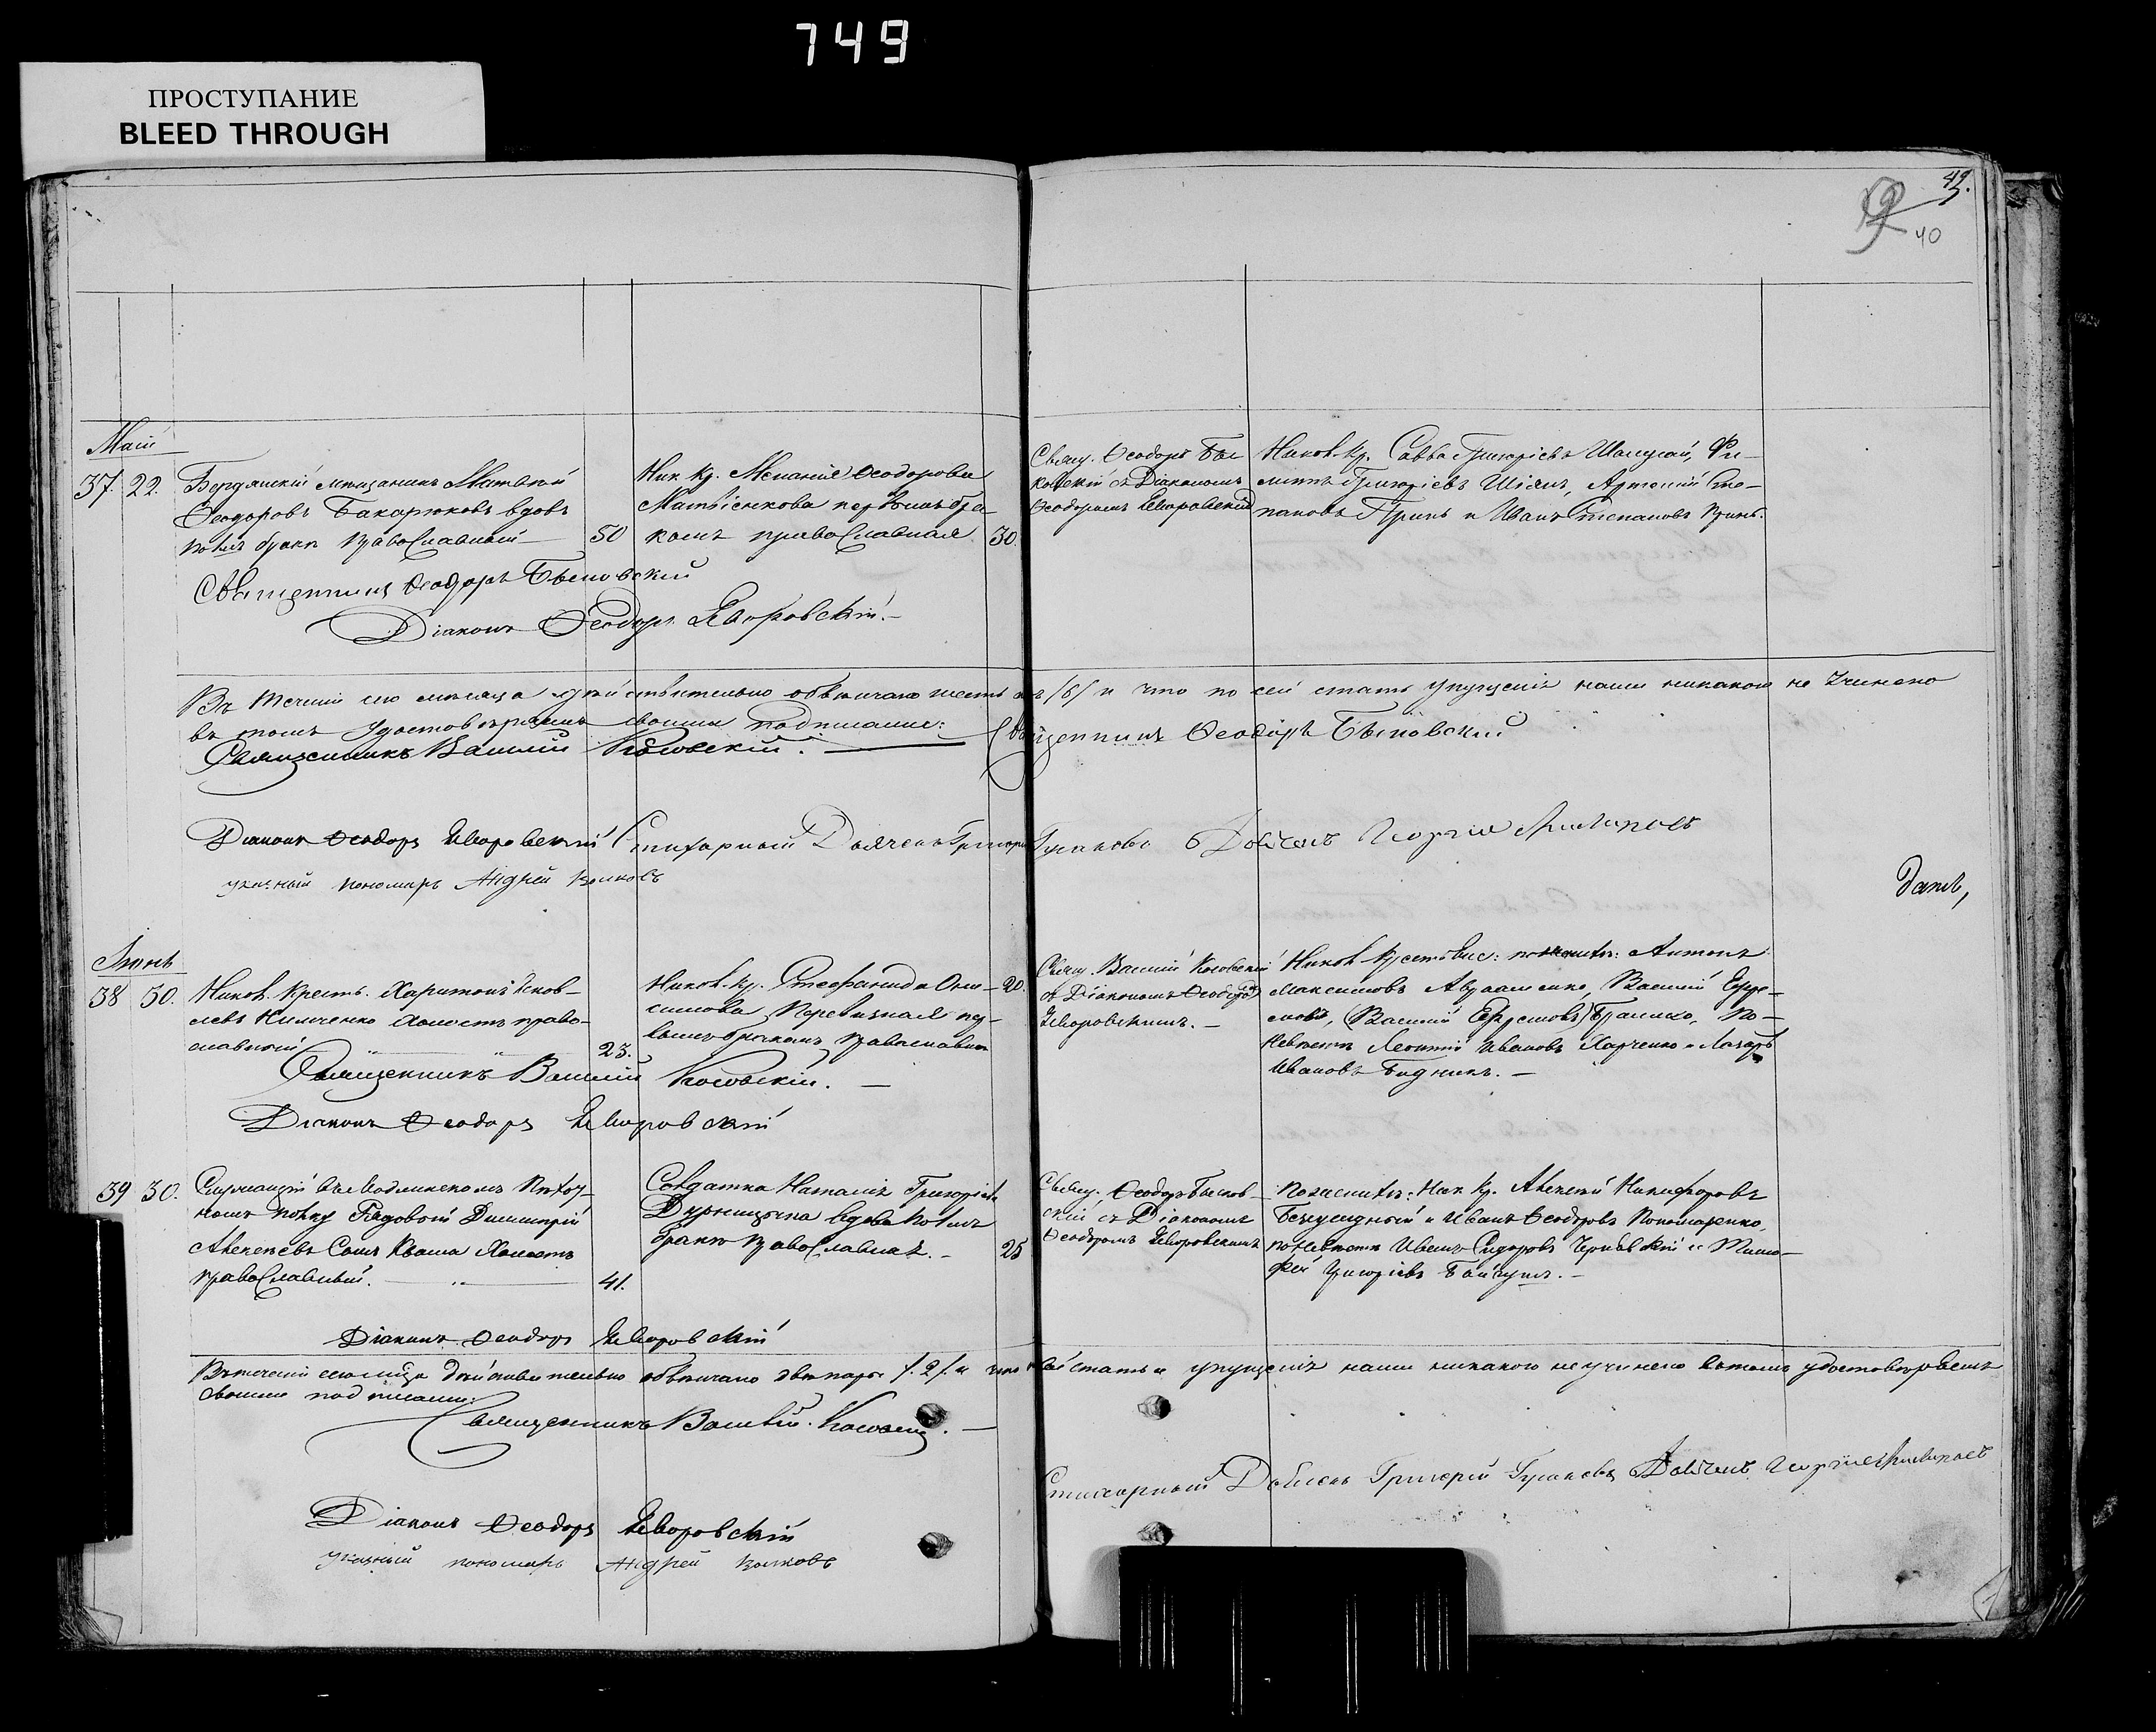 749
ПРОСТУПАНИЕ
BLEED THROUGH
49.
40
Маій
37. 22.
Бердянскій мѣщанинъ Матвѣй
Ѳеодоровъ Бакарюковъ вдовъ
православный 50
Ник. кр. Меланія Ѳеодорова
Матвіенкова первымъ бра-
комъ православная 30.
Свящ. Ѳеодоръ Бы-
ковскій съ Діакономъ
Ѳеодоромъ Яворовскимъ
Николь. кр. Савва Григоріевъ Фи-
липпъ Григоріевъ Артемій Сте-
пановъ Гринь и Иванъ Степановъ
Священникъ Ѳеодоръ Быковскій
Діаконъ Ѳеодоръ Яворовскій.
Въ теченіи сего мѣсяца дѣйствительно обвѣнчано шесть /6/ и что по сей стать упущенія нами никакого не учинено
въ томъ удостовѣряемъ своими подписами:
Священникъ Василій Косовскій.
Священникъ Ѳеодоръ Быковскій
Діаконъ Ѳеодоръ Яворовскій Стихарный Дьячекъ Григорій Гусаковъ Дьячекъ Георгій
указный пономарь Андрей Волковъ
данъ,
Іюнь
38 30.
Никол. Крест. Харитонъ Яков-
левъ Нимченко Холостъ право-
славный 23.
Никол. кр. Стефанида Они-
симова Перевизная пер-
вымъ бракомъ Православная 20.
Свящ. Василій Косовскій
съ Діакономъ Ѳеодоромъ
Яворовскимъ. —
Никол. Крестьяне: по женихѣ: Антонъ
Максимовъ Авраменко, Василій Ефре-
мовъ, (Василій Ефремовъ) По-
невѣстѣ Леонтій Ивановъ Харченко и Лазарь
Ивановъ Бидникъ. —
Священникъ Василій Косовскій. —
Діаконъ Ѳеодоръ Яворовскій
39 30.
Служащій въ Пѣхот-
номъ полку Рядовой Димитрій
Алексѣевъ Сынъ Кваша Холостъ
православный. 41.
Солдатка Наталія Григоріева
вдова
бракѣ православная. — 25
Свящ. Ѳеодоръ Быков-
скій съ Діакономъ
Ѳеодоромъ Яворовскимъ
По женихѣ: Ник. Кр. Алексѣй Никифоровъ
и Иванъ Ѳеодоровъ Пономаренко,
по невѣстѣ Иванъ Сидоровъ и Тимо-
фей Григоріевъ
Діаконъ Ѳеодоръ Яворовскій
Въ теченіи сего мѣсяца дѣйствительно обвѣнчано двѣ пары /.2/. и что стать и упущенія нами никакого неучинено въ томъ удостовѣряемъ
своими подписами:
Священникъ Василій Косовскій. —
Стихарный Дьячекъ Григорій Гусаковъ Дьячекъ Георгій
Діаконъ Ѳеодоръ Яворовскій
указный пономарь Андрей Волковъ